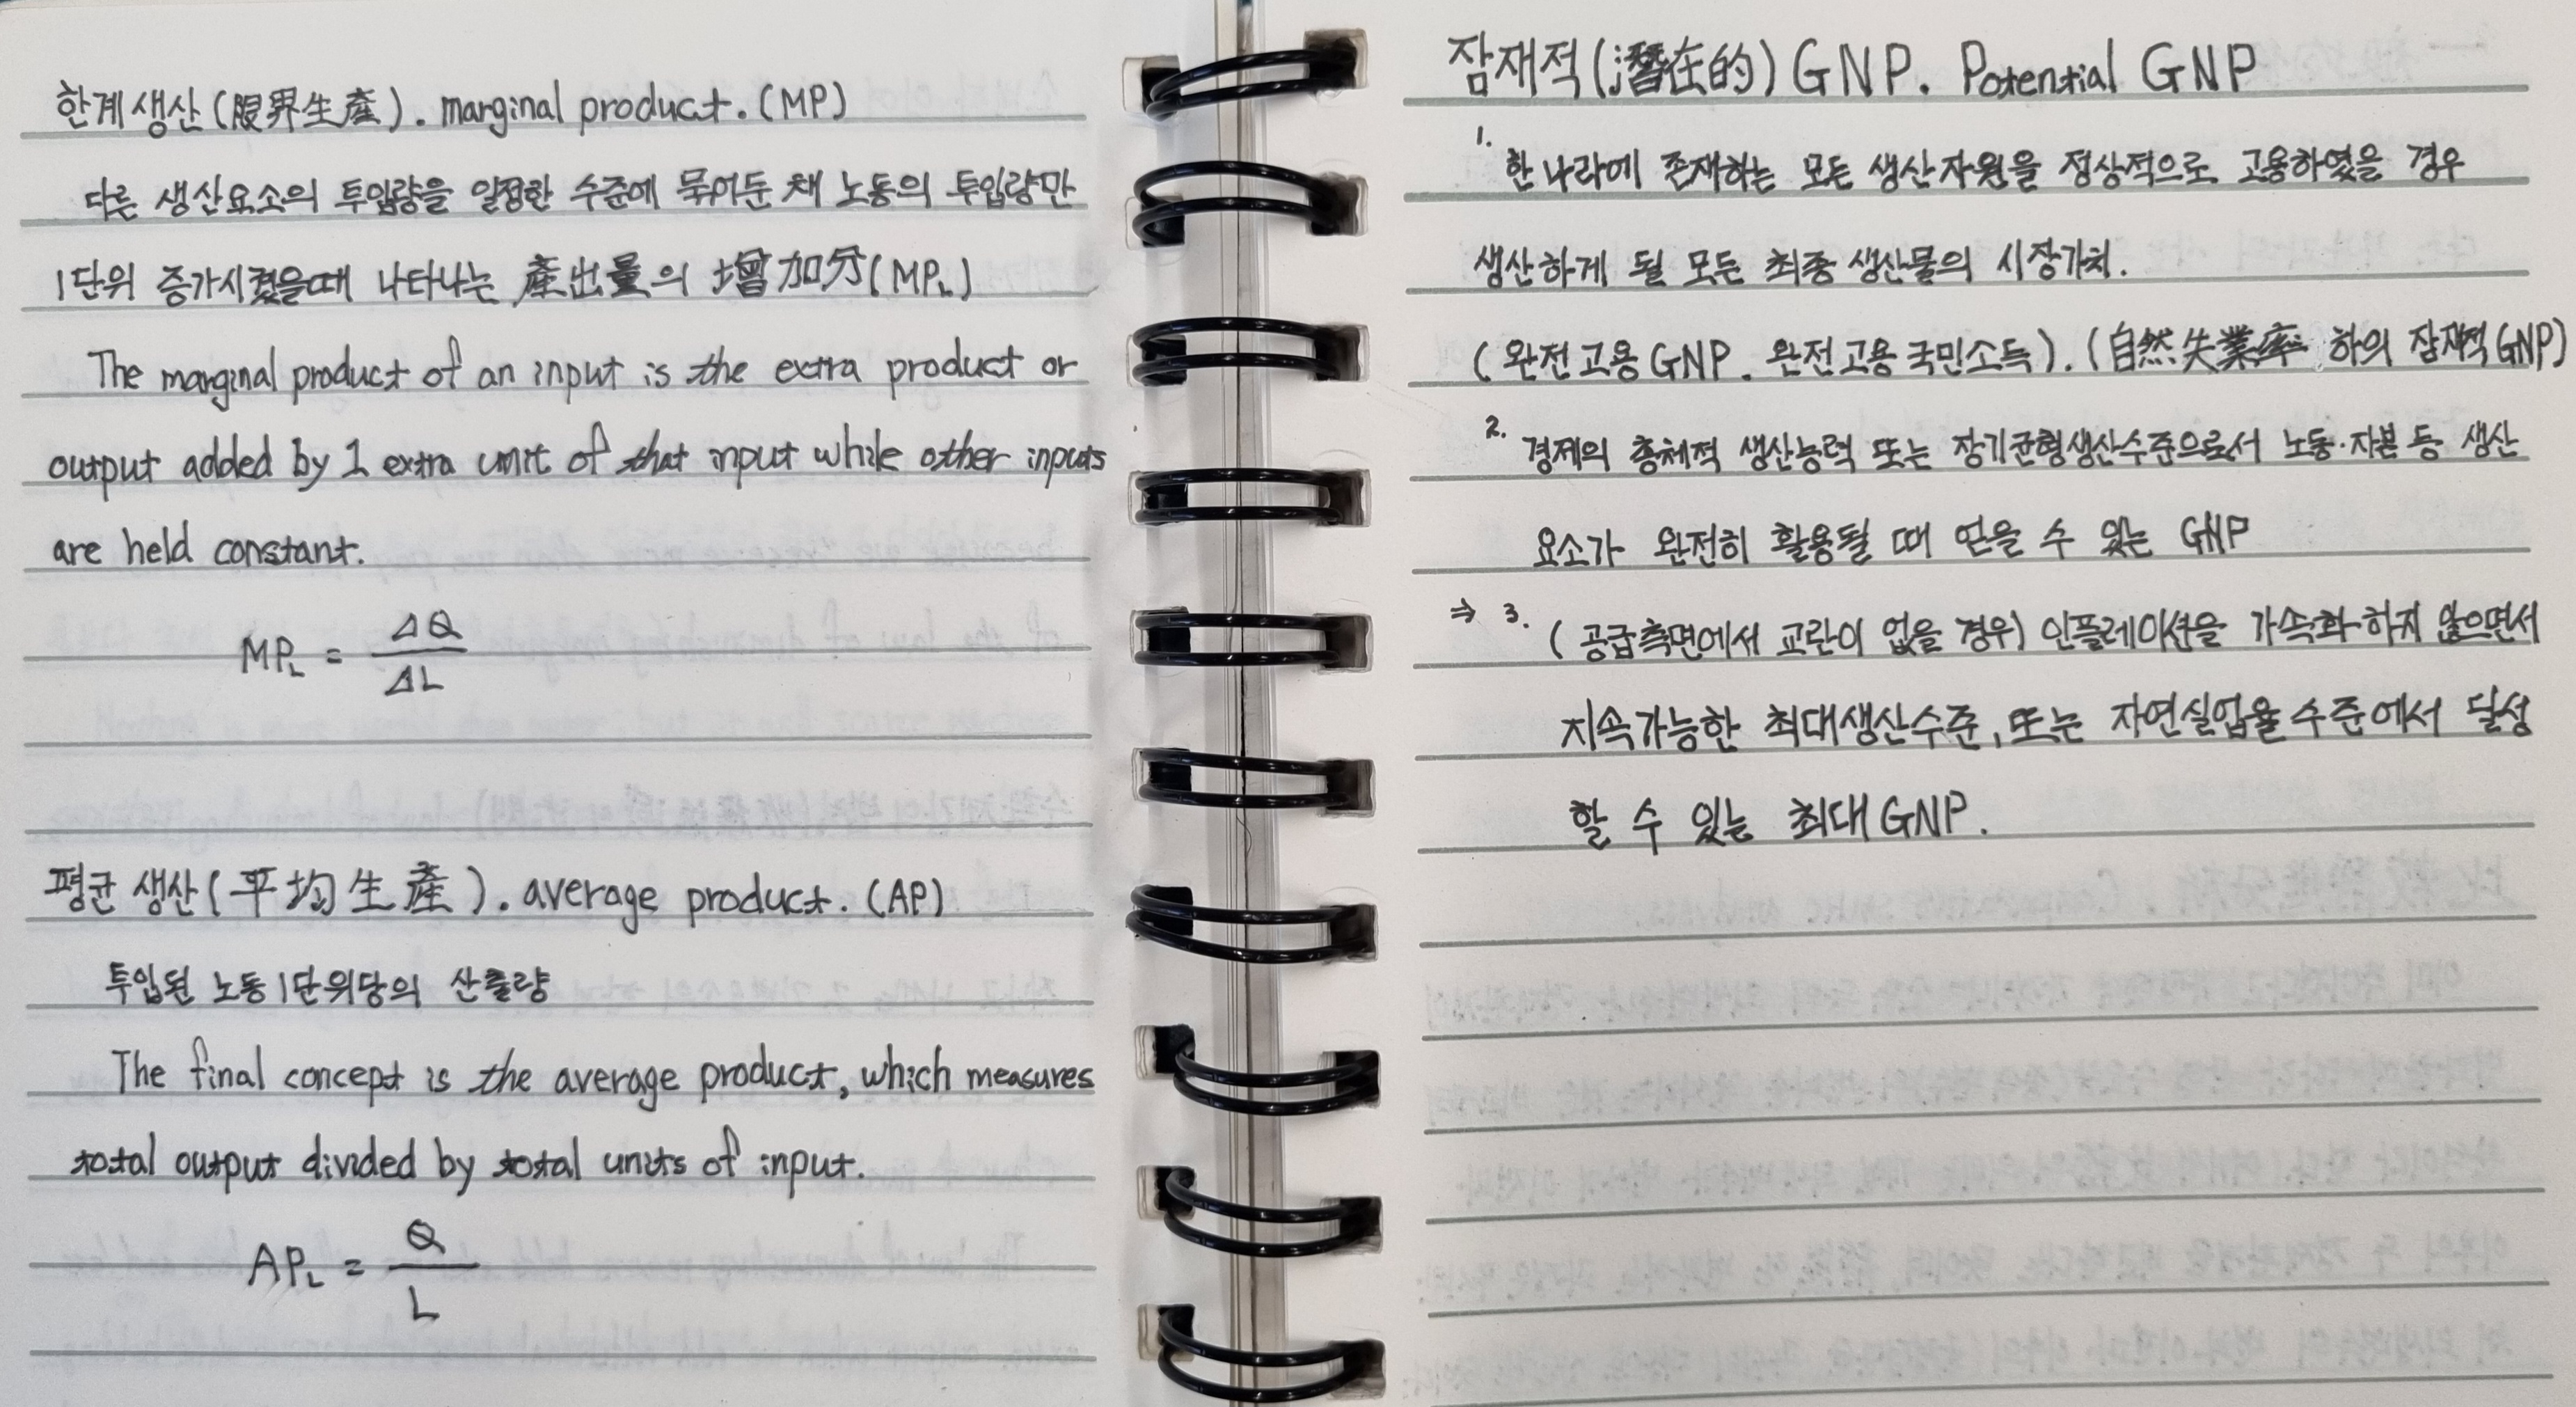 한계생산(限界生産). marginal product. (MP)
다른 생산요소의 투입량을 일정한 수준에 묶어둔 채 노동의 투입량만
1단위 증가시켰을때 나타나는 産出量의 增加分(MPL)
The marginal product of an input is the extra product or
output added by 1 extra unit of that input while other inputs
are held constant.
MPL = ΔQ / ΔL
평균 생산(平均生産). average product. (AP)
투입된 노동 1단위당의 산출량
The final concept is the average product, which measures
total output divided by total units of input.
APL = Q / L
잠재적(潛在的) GNP. Potential GNP
1. 한 나라에 존재하는 모든 생산자원을 정상적으로 고용하였을 경우
생산하게 될 모든 최종 생산물의 시장가치.
(완전고용GNP. 완전고용국민소득). (自然失業率 하의 잠재적GNP)
2. 경제의 총체적 생산능력 또는 장기균형생산수준으로서 노동·자본 등 생산
요소가 완전히 활용될 때 얻을 수 있는 GNP
⇒ 3. (공급측면에서 교란이 없을 경우) 인플레이션을 가속화하지 않으면서
지속가능한 최대생산수준, 또는 자연실업율수준에서 달성
할 수 있는 최대GNP.